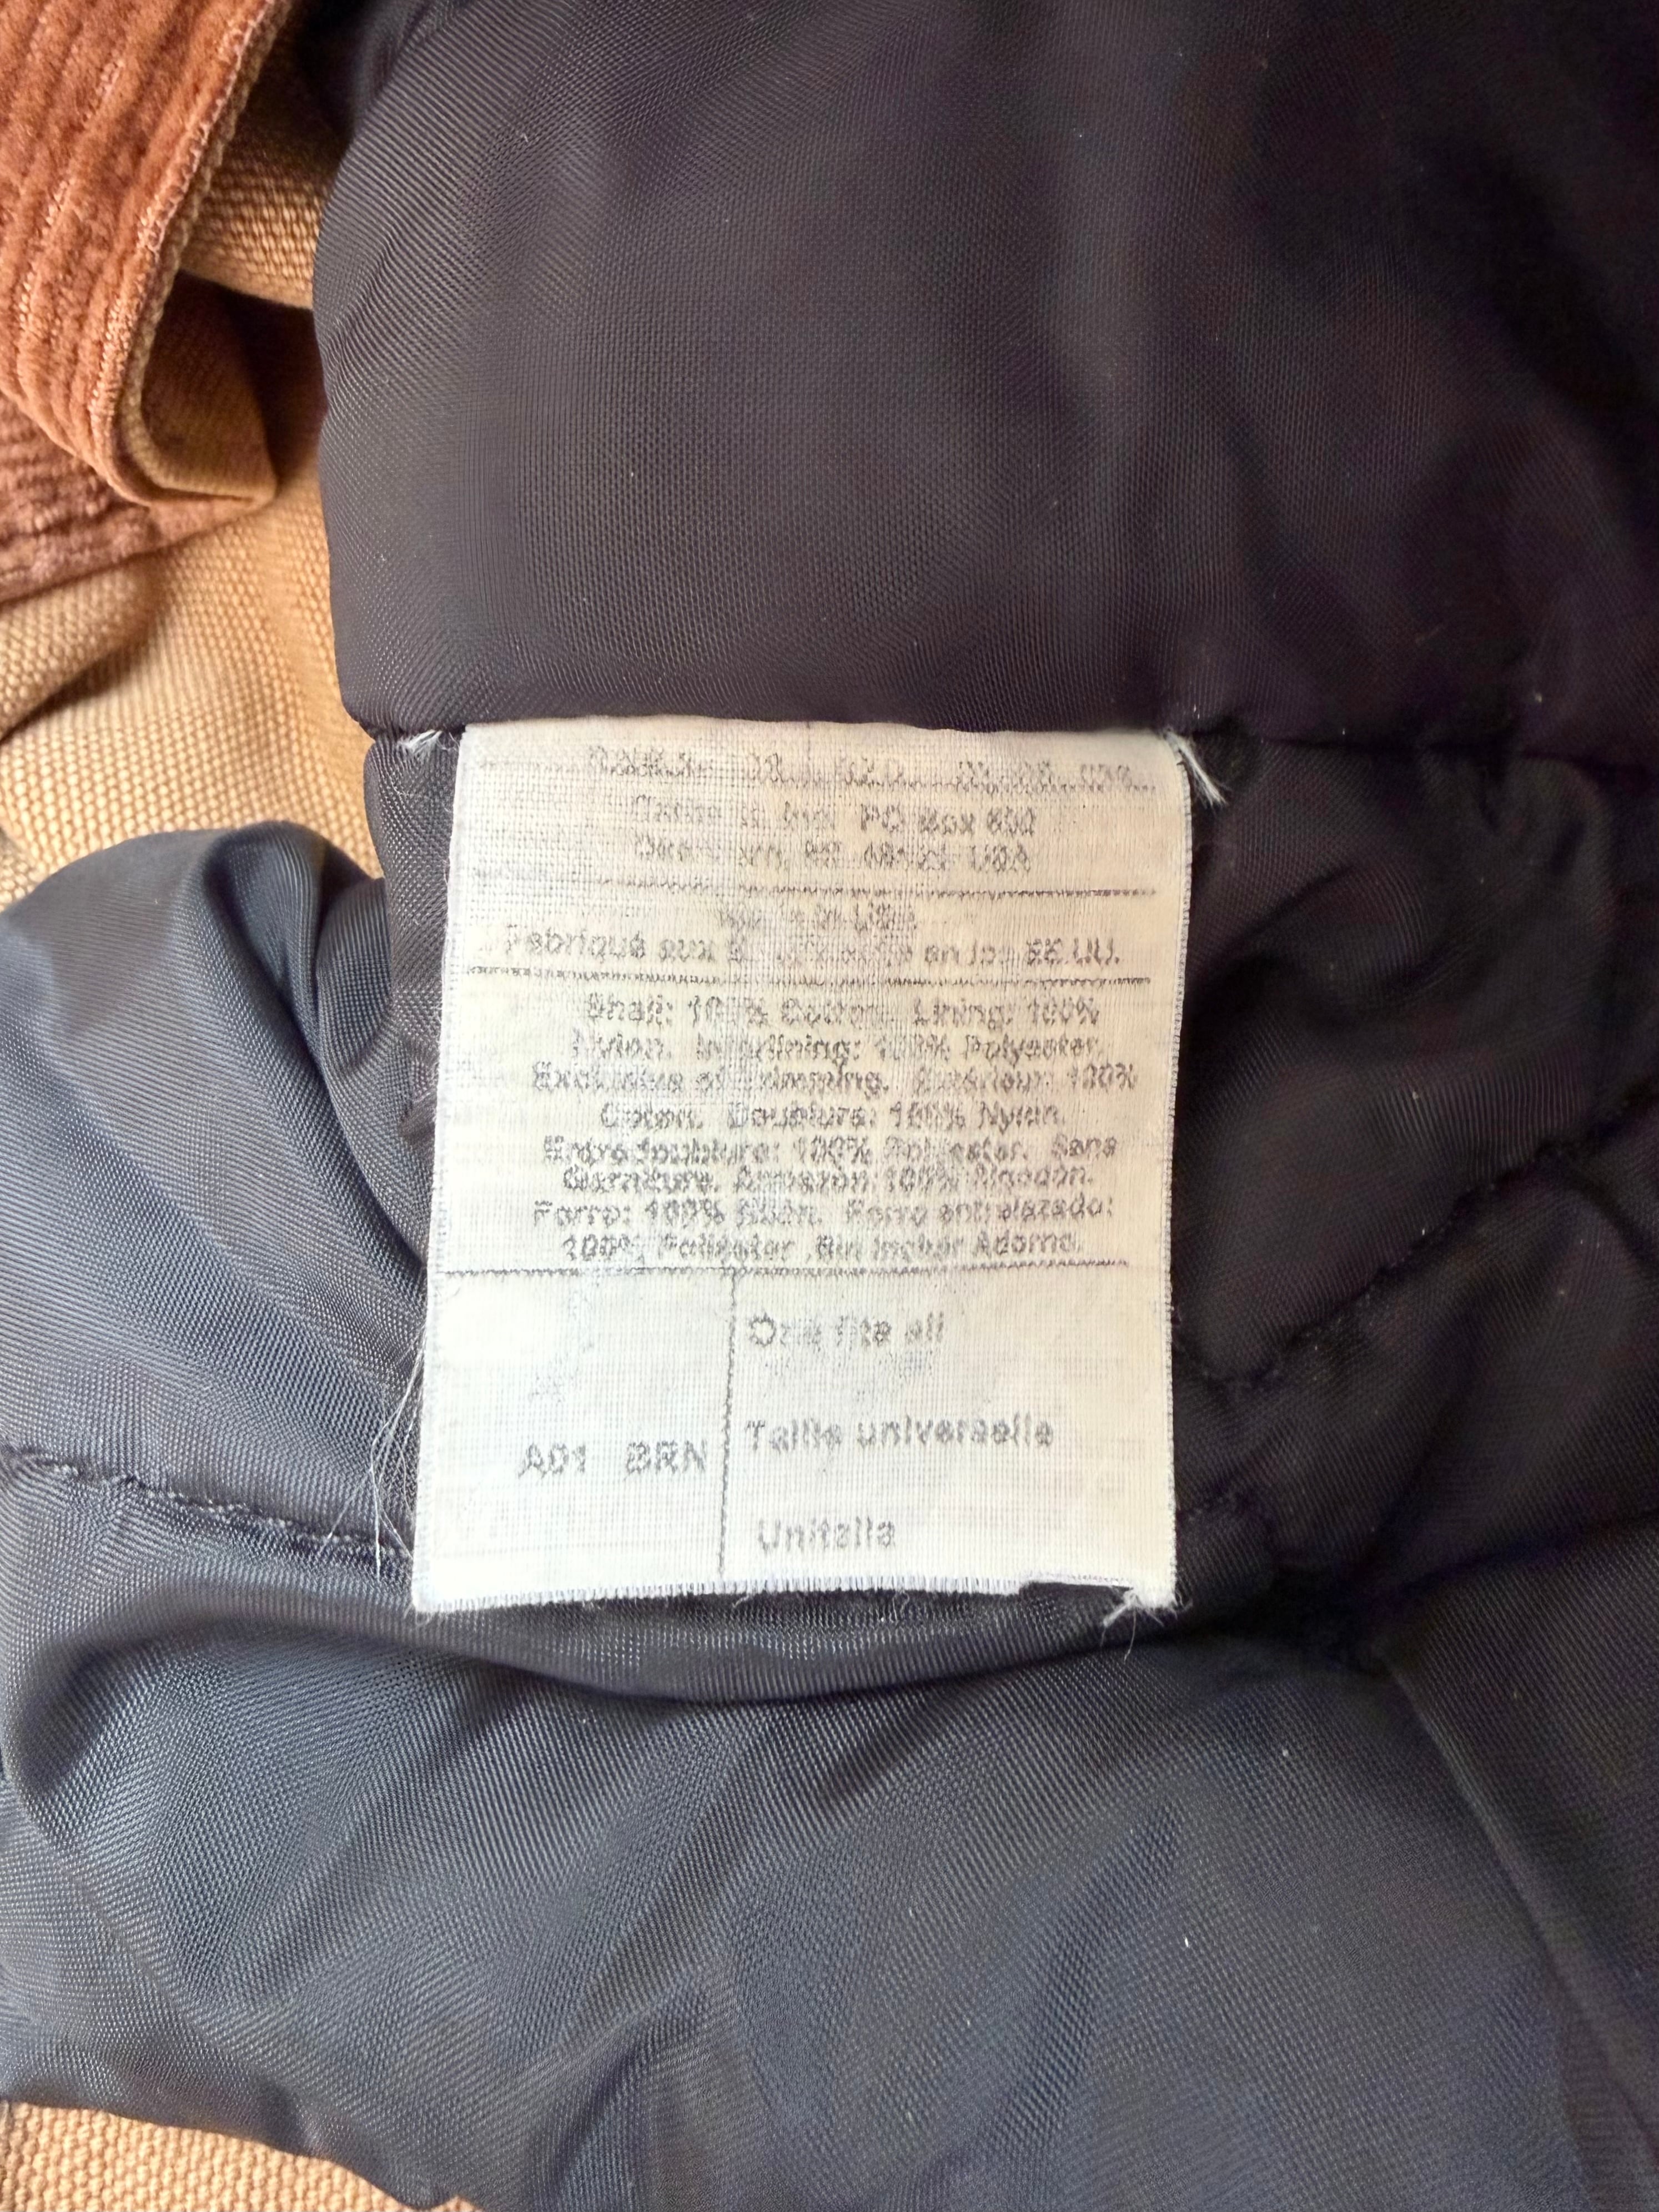 PO Box 600
USA
Made in USA
Fabriqué aux en los EE.UU.
Shell: 100% Cotton. Lining: 100%
Nylon. Interlining: 100% Polyester.
Exclusive of Trimming. Extérieur: 100%
Coton. Doublure: 100% Nylon.
100% Polyester. Sans
Garniture. Armazón 100% Algodón.
Forro: 100% Nilón. Forro entrelazado:
100% Poliester. Sin Incluir Adorno.
One fits all
A01 BRN
Taille universelle
Unitalla